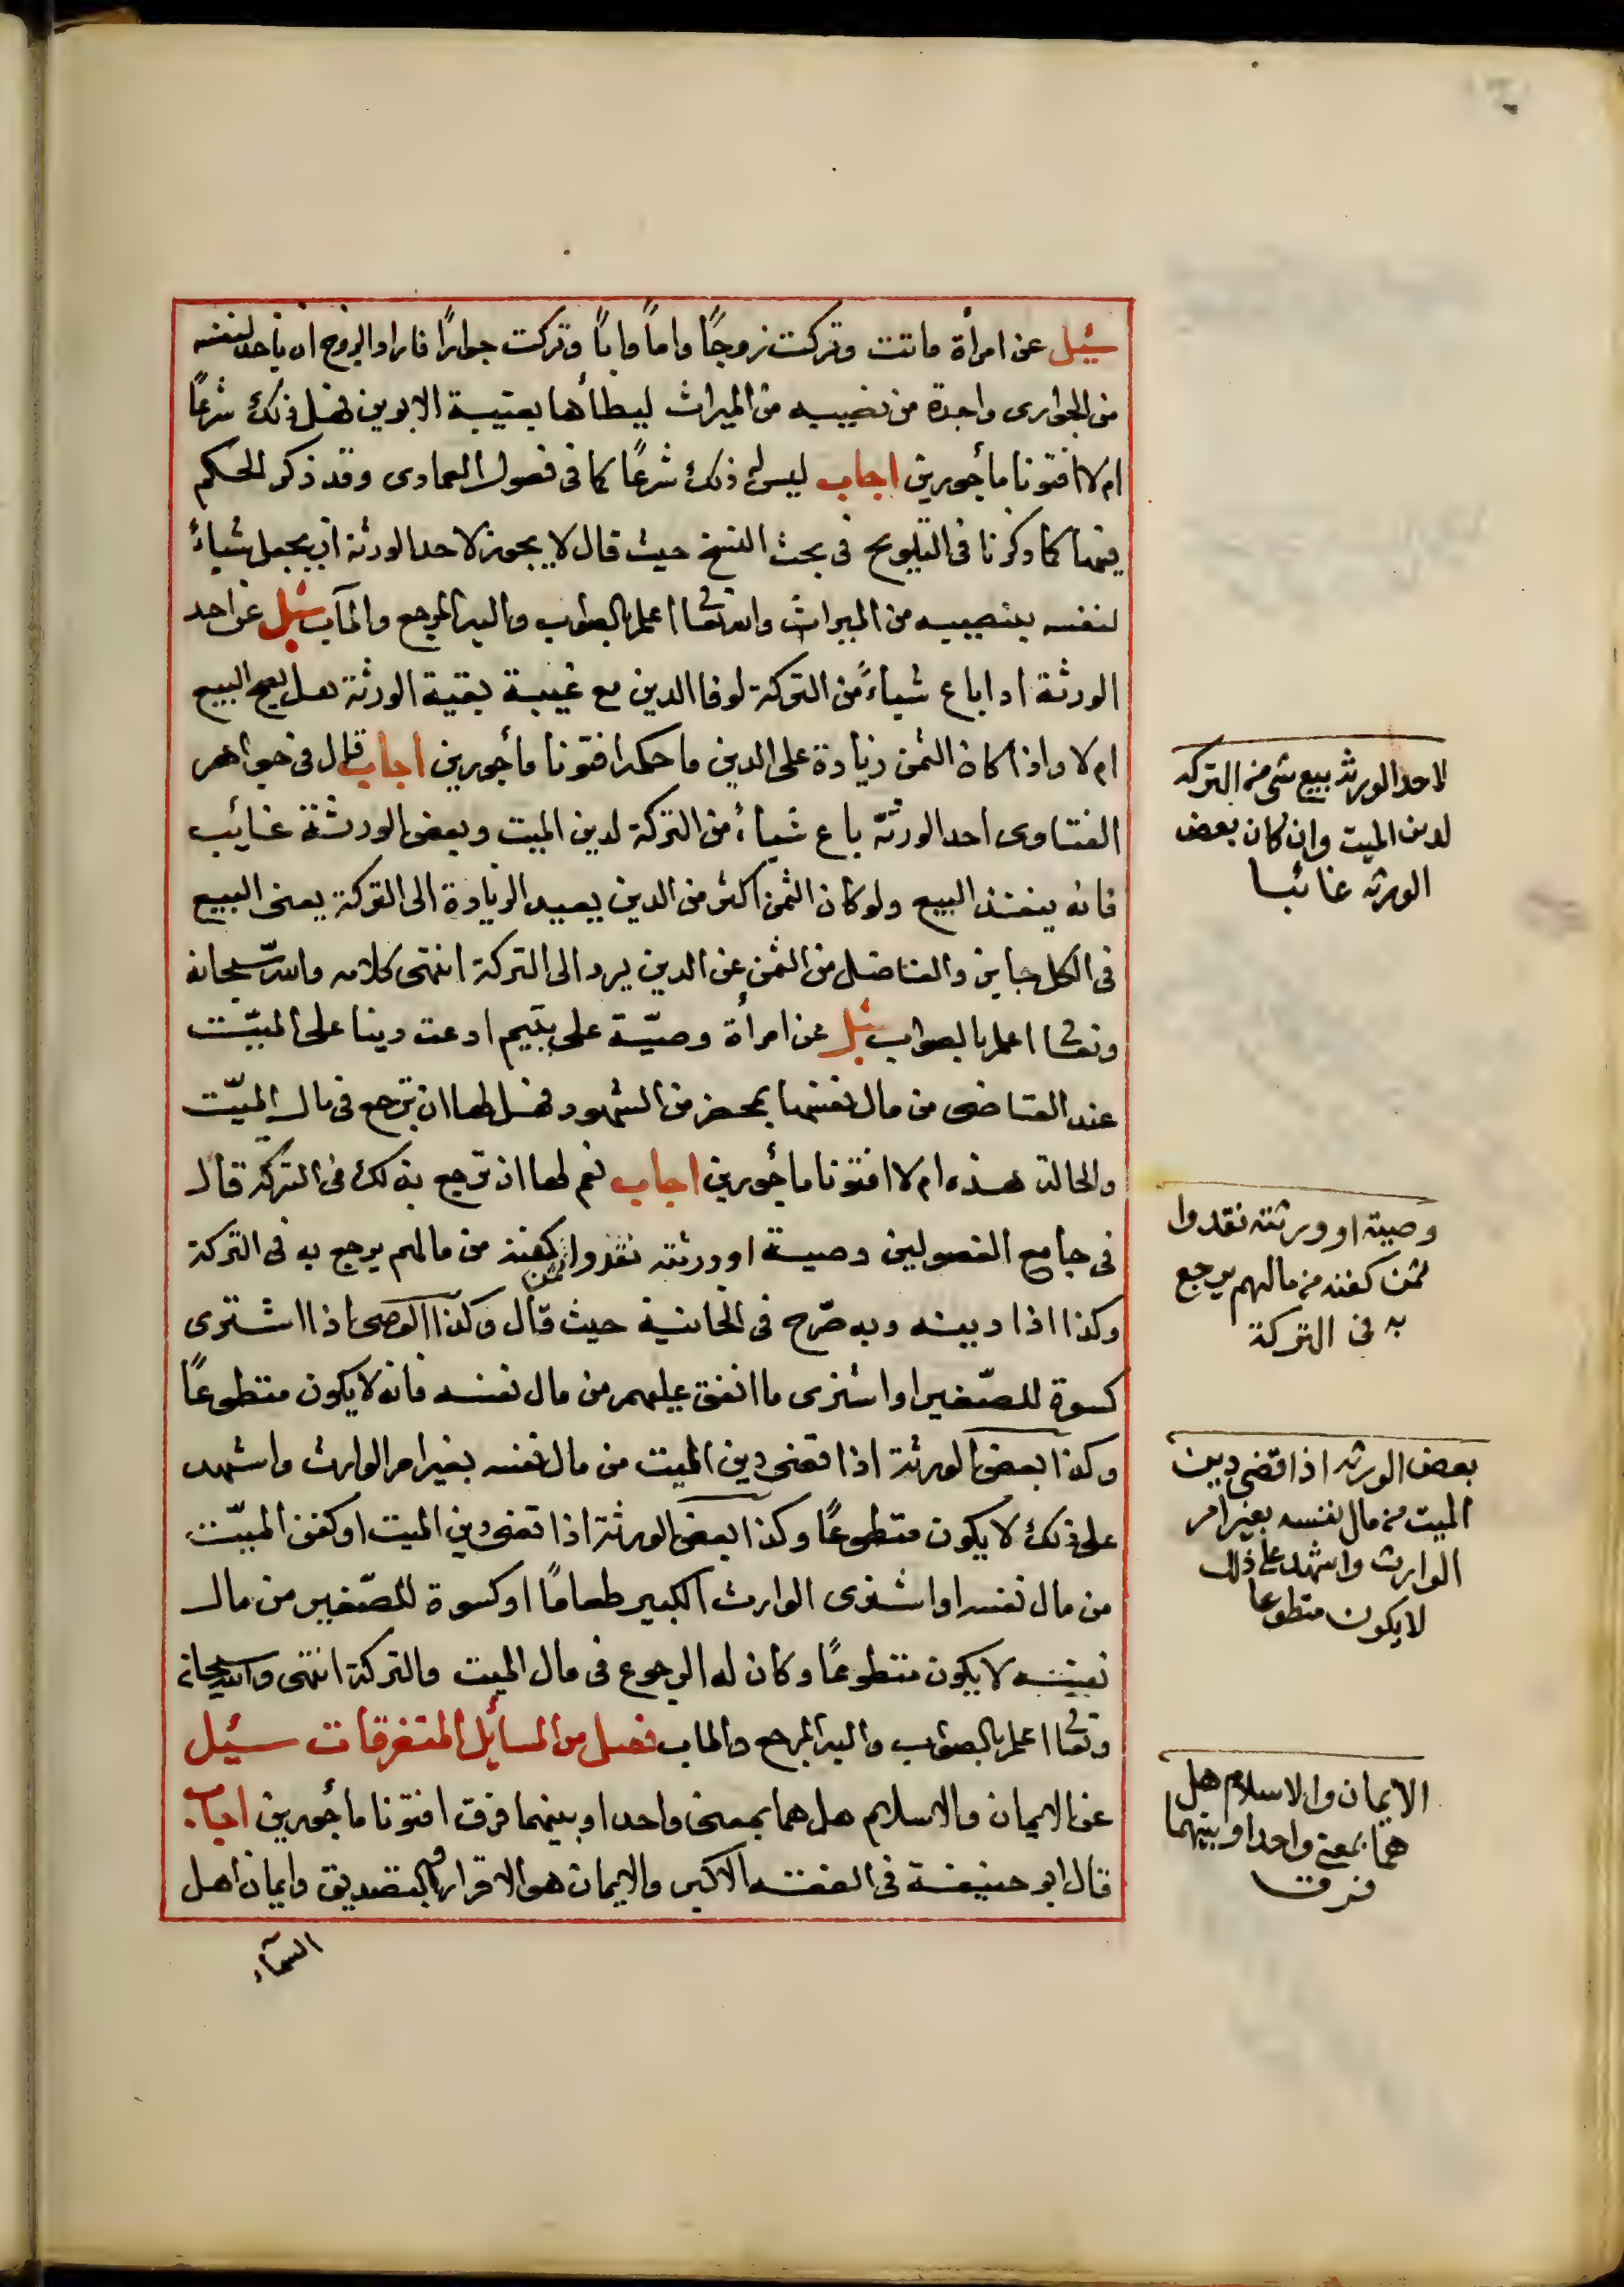 سئيل عن امرأة ماتت وتركت زوجًا واماً واباً وتركت جوارًا فاراد الزوج ان ياخذ لنفسه
من الجوارى واحدة من نصيبيه من الميراث ليطأها بغيبة الابوين فهل ذلك شرعًا
ام لا افتونا مأجورين اجاب ليس له ذلك شرعًا كما فى فصول العمادى وقد ذكر الحكم
فيها كما ذكرنا فى التلويح فى بحث النسخ حيث قال لا يجوز لاحد الورثة ان يجعل شياءً
لنفسه بنصيبيه من الميراث والله تعالى اعلم بالصواب واليه المرجع والمآب سئيل عن احد
الورثة اذا باع شياءً من التركة لوفا الدين مع غيبة بقية الورثة هل يصح البيع
ام لا واذا كان الثمن زيادة على الدين ما حكمه افتونا مأجورين اجاب قال فى جواهر
الفتاوى احد الورثة باع شياءً من التركة لدين الميت وبعض الورثة غائب
فانه ينفذ البيع ولو كان الثمن اكثر من الدين يعيد الزيادة الى التركة يعنى البيع
فى الكل جايز والفاضل من الثمن عن الدين يرد الى التركة انتهى كلامه والله سبحانه
وتعالى اعلم بالصواب سئل عن امرأة وصيّة على يتيم ادعت دينا على الميّت
عند القاضى من مال نفسها بمحضر من الشهود فهل لها ان ترجع فى مال الميّت
والحالة هذه ام لا افتونا مأجورين اجاب نعم لها ان ترجع بذلك فى التركة قال
فى جامع الفصولين وصية او ورثته نقدوا ثمن كفنه من مالهم يرجع به فى التركة
وكذا اذا دينه وبه صرّح فى الخانية حيث قال وكذا الوصى اذا اشترى
كسوة للصّغير او اشترى ما انفق عليهم من مال نفسه فانه لا يكون متطوعًا
وكذا بعض الورثة اذا قضى دين الميت من مال نفسه بغير امر الوارث واشهد
على ذلك لا يكون متطوعًا وكذا بعض الورثة اذا قضى دين الميت او كفن الميّت
من مال نفسه او اشترى الوارث الكبير طعامًا او كسوة للصّغير من مال
نفسه لا يكون متطوعًا وكان له الرجوع فى مال الميت والتركة انتهى والله سبحانه
وتعالى اعلم بالصواب واليه المرجع والماب فصل من المسائل المتفرقات سئيل
عن الايمان والاسلام هل هما بمعنى واحد او بينهما فرق افتونا مأجورين اجاب
قال ابو حنيفة فى الفقه الاكبر والايمان هو الاقرار والتصديق وايمان اهل
السمآء
لاحد الورثه بيع شى من التركه
لدين الميت وان كان بعض
الورثه غائبا
وصيته او ورثته نقدوا
ثمن كفنه من مالهم يرجع
به فى التركة
بعض الورثه اذا قضى دين
الميت من مال نفسه بغير امر
الوارث واشهد على ذلك
لا يكون متطوعا
الايمان والاسلام هل
هما بمعنى واحد او بينهما
فرق